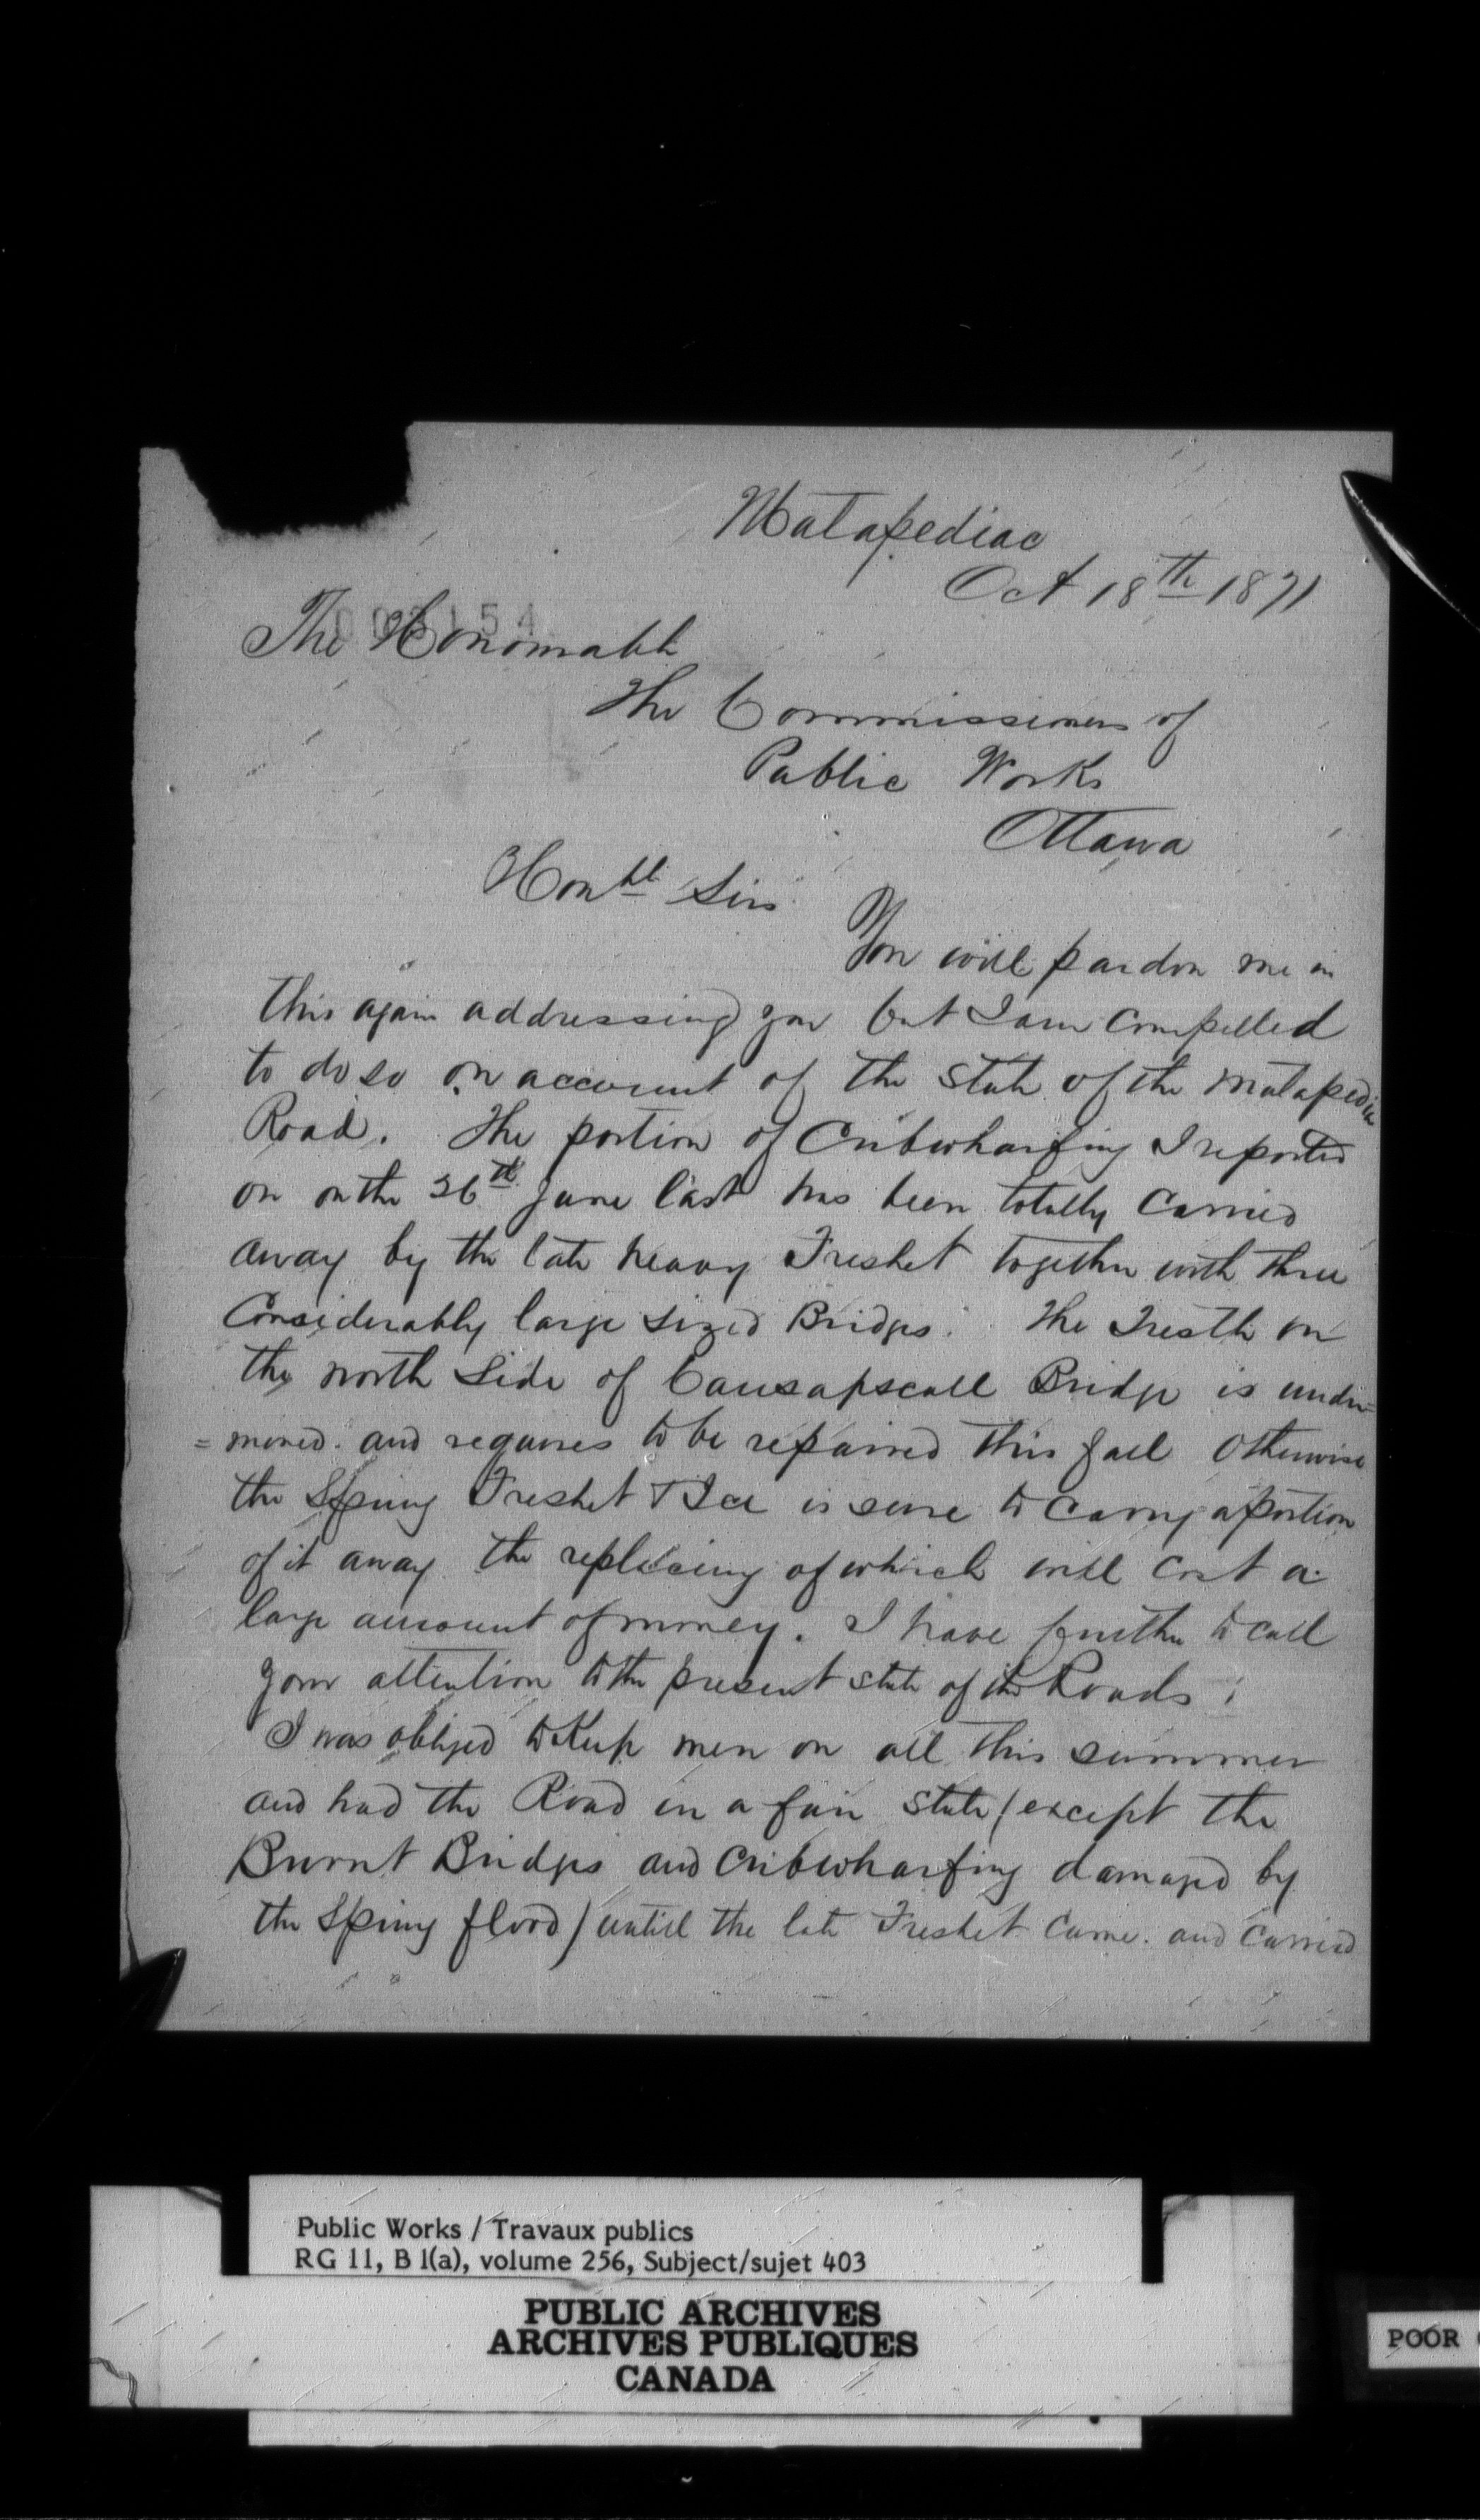 Matapediac
Oct 18th 1871
003154
The Honorable
The Commissioners of
Public Works
Ottawa
Honble Sirs
You will pardon me in
this again addressing you but I am compelled
to do so on account of the state of the Matapedia
Road. The portion of Cribwharfing I reported
on on the 26th June last has been totally carried
away by the late heavy Freshet together with three
Considerably large sized Bridges. The Trestle on
the north side of Causapscall Bridge is under=
=mined. and requires to be repaired this fall Otherwise
the Spring Freshet & Ice is sure to carry a portion
of it away the replacing of which will cost a
large amount of money. I have further to call
your attention to the present state of the Roads.
I was obliged to keep men on all this summer
and had the Road in a fair state (except the
Burnt Bridges and Cribwharfing damaged by
the Spring flood) until the late Freshet came. and carried
Public Works / Travaux publics
RG 11, B 1(a), volume 256, Subject/sujet 403
PUBLIC ARCHIVES
ARCHIVES PUBLIQUES
CANADA
POOR